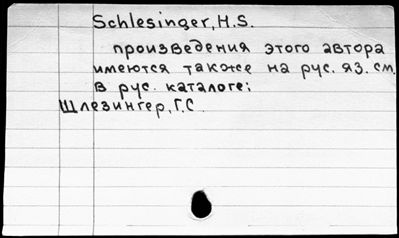 Schlesinger, H.S.
произведения этого автора
имеются также на рус. яз. см.
в рус. каталоге:
Шлезингер, Г.С.